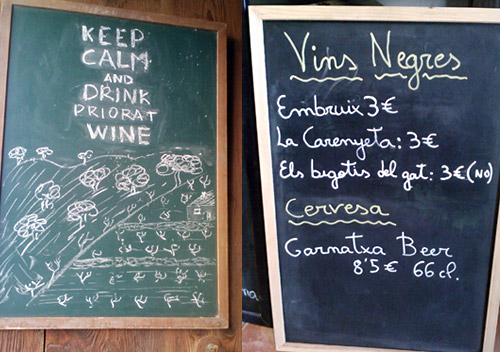 KEEP
CALM
AND
DRINK
PRIORAT
WINE
Vins Negres
Embruix 3€
La Carenyeta: 3€
Els bigotis del gat: 3€ (NO)
Cervesa
Garnatxa Beer
8'5€ 66cl.